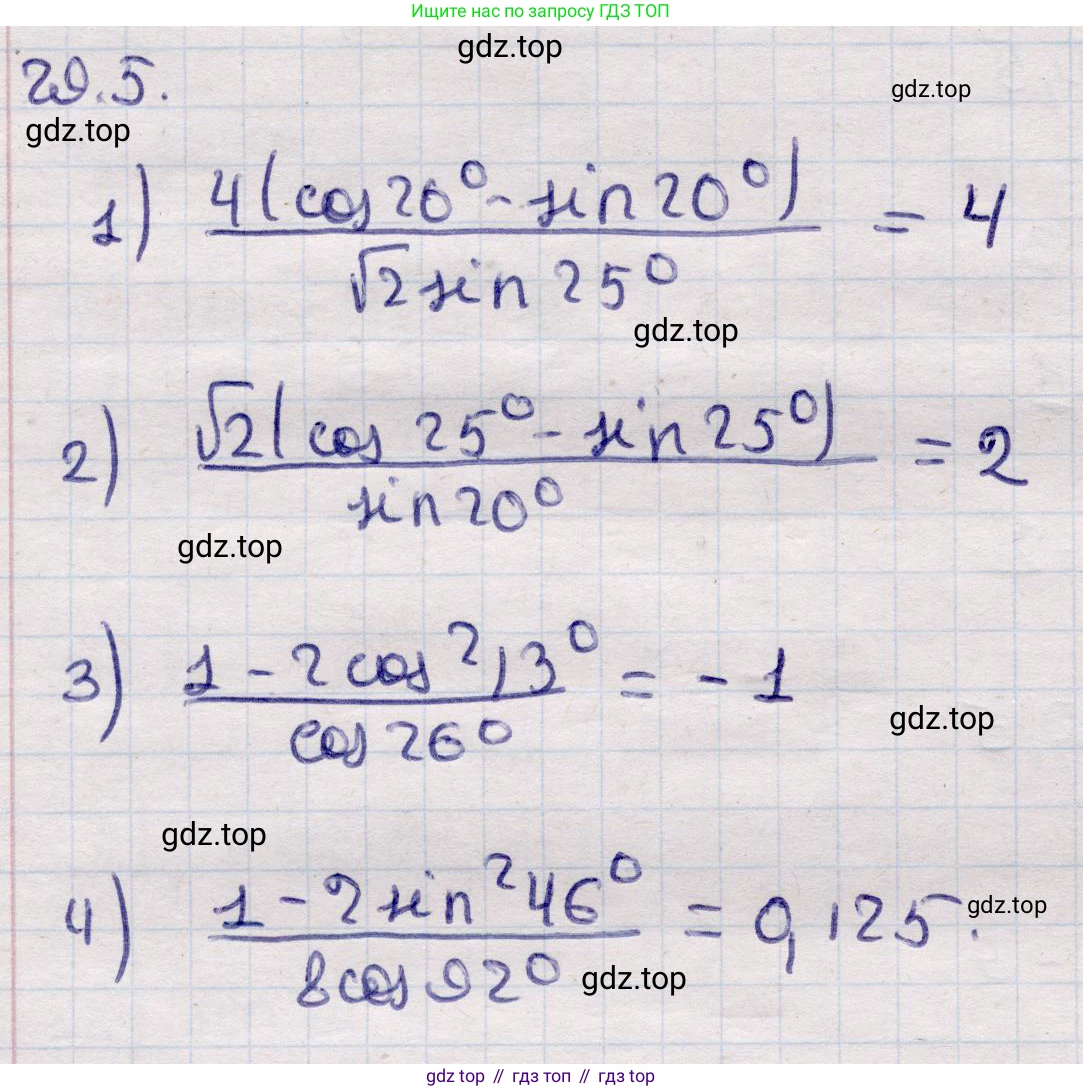 Ищите нас по запросу ГДЗ ТОП
gdz.top
29.5.
gdz.top
gdz.top
1) 4(cos20° - sin20°) / √2 sin 25° = 4
gdz.top
2) √2(cos 25° - sin 25°) / sin 20° = 2
gdz.top
3) 1 - 2 cos²13° / cos 26° = - 1
gdz.top
gdz.top
4) 1 - 2 sin²46° / 8 cos 92° = 0,125.
gdz.top
gdz.top
gdz top // гдз топ // gdz top